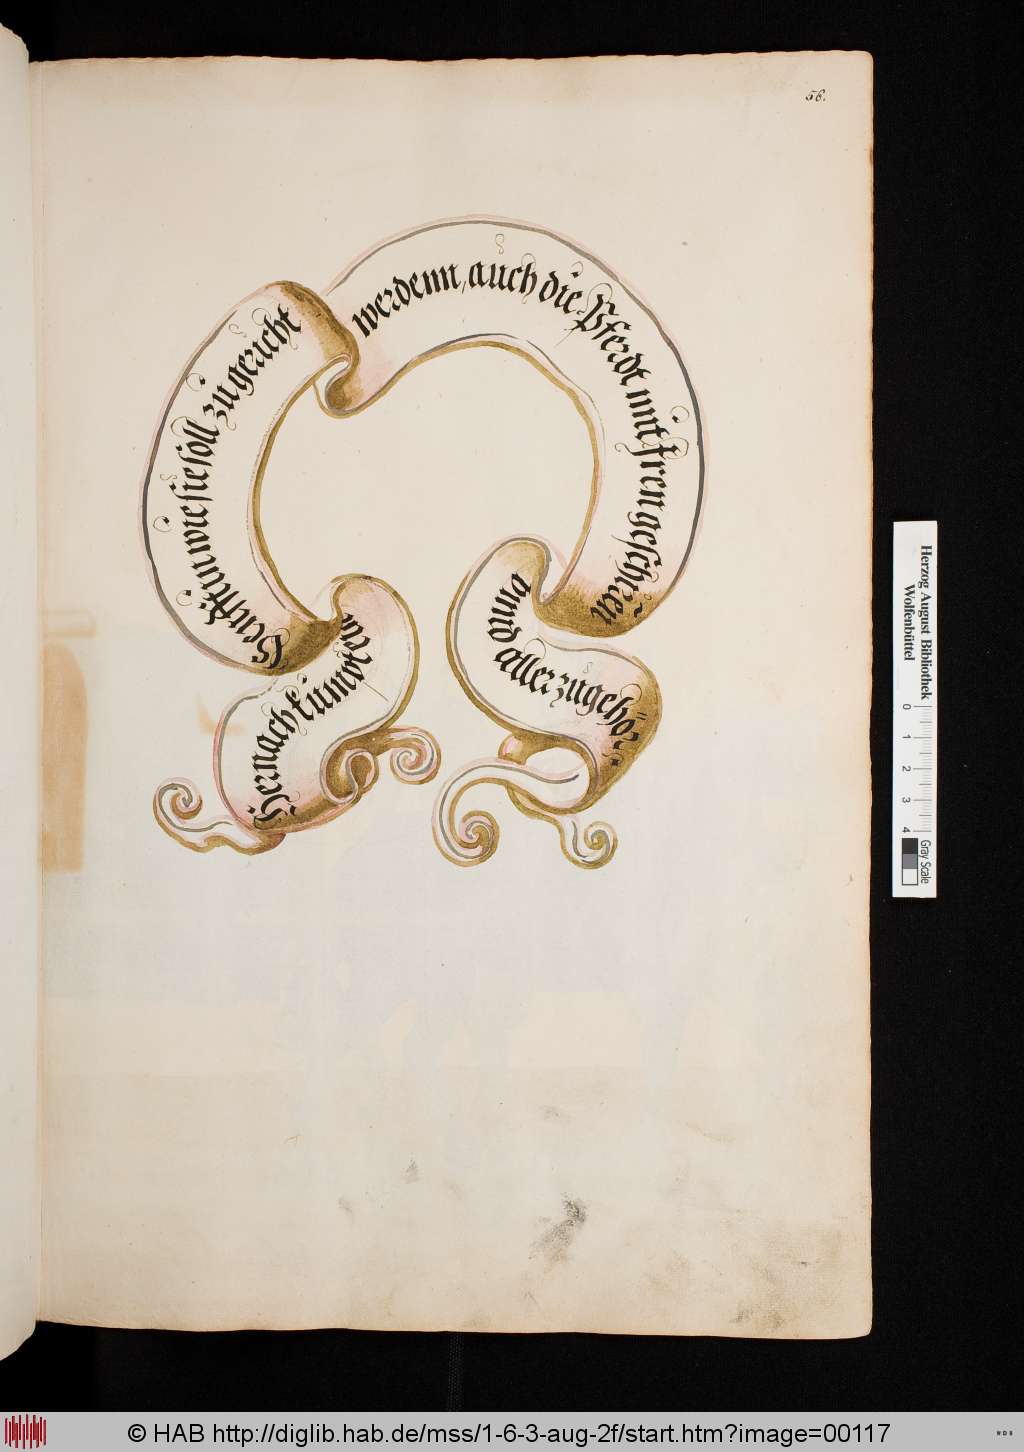 56.
Hernach kumpt ein
Senfftin wie sie soll zugericht
werdenn, auch die Pferdt mit Iren geschiren
vnnd aller zugehör:
Herzog August Bibliothek
Wolfenbüttel
0 1 2 3 4
Gray Scale
© HAB http://diglib.hab.de/mss/1-6-3-aug-2f/start.htm?image=00117